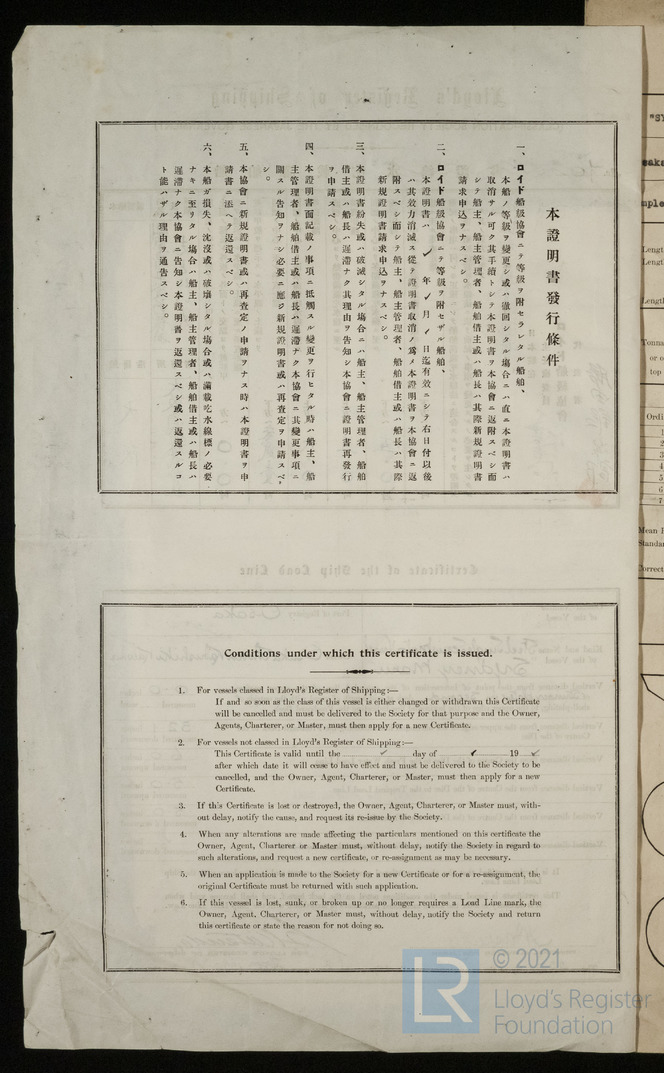 本證明書發行條件
一、ロイド船級協會ニテ等級ヲ附セラレタル船舶、
本船ノ等級ヲ變更シ或ハ撤回シタル場合ニハ直ニ本證明書ハ
取消サル可ク其手續トシテ本證明書ヲ本協會ニ返附スベシ而
シテ船主、船主管理者、船舶借主或ハ船長ハ其際新規證明書
請求申込ヲナスベシ。
二、ロイド船級協會ニテ等級ヲ附セザル船舶、
本證明書ハ 年 月 日迄有效ニシテ右日付以後
ハ其效力消滅ス從テ證明書取消ノ爲メ本證明書ヲ本協會ニ返
附スベシ而シテ船主、船主管理者、船舶借主或ハ船長ハ其際
新規證明書請求申込ヲナスベシ。
三、本證明書紛失或ハ破滅シタル場合ニハ船主、船主管理者、船舶
借主或ハ船長ハ遲滯ナク其理由ヲ告知シ本協會ニ證明書再發行
ヲ申請スベシ。
四、本證明書面記載ノ事項ニ抵觸スル變更ヲ行ヒタル時ハ船主、船
主管理者、船舶借主或ハ船長ハ遲滯ナク本協會ニ其變更事項ニ
關スル告知ヲナシ必要ニ應ジ新規證明書或ハ再査定ヲ申請スベ
シ。
五、本協會ニ新規證明書或ハ再査定ノ申請ヲナス時ハ本證明書ヲ申
請書ニ添ヘテ返還スベシ。
六、本船ガ損失、沈沒或ハ破壞シタル場合或ハ滿載吃水線標ノ必要
ナキニ至リタル場合ハ船主、船主管理者、船舶借主或ハ船長ハ
遲滯ナク本協會ニ告知シ本證明書ヲ返還スベシ或ハ返還スルコ
ト能ハザル理由ヲ通告スベシ。
Conditions under which this certificate is issued.
1. For vessels classed in Lloyd's Register of Shipping:—
If and so soon as the class of this vessel is either changed or withdrawn this Certificate
will be cancelled and must be delivered to the Society for that purpose and the Owner,
Agents, Charterer, or Master, must then apply for a new Certificate.
2. For vessels not classed in Lloyd's Register of Shipping:—
This Certificate is valid until the ✓ day of ✓ 19 ✓
after which date it will cease to have effect and must be delivered to the Society to be
cancelled, and the Owner, Agent, Charterer, or Master, must then apply for a new
Certificate.
3. If this Certificate is lost or destroyed, the Owner, Agent, Charterer, or Master must, with-
out delay, notify the cause, and request its re-issue by the Society.
4. When any alterations are made affecting the particulars mentioned on this certificate the
Owner, Agent, Charterer or Master must, without delay, notify the Society in regard to
such alterations, and request a new certificate, or re-assignment as may be necessary.
5. When an application is made to the Society for a new Certificate or for a re-assignment, the
original Certificate must be returned with such application.
6. If this vessel is lost, sunk, or broken up or no longer requires a Load Line mark, the
Owner, Agent, Charterer, or Master must, without delay, notify the Society and return
this certificate or state the reason for not doing so.
LR © 2021
Lloyd's Register
Foundation